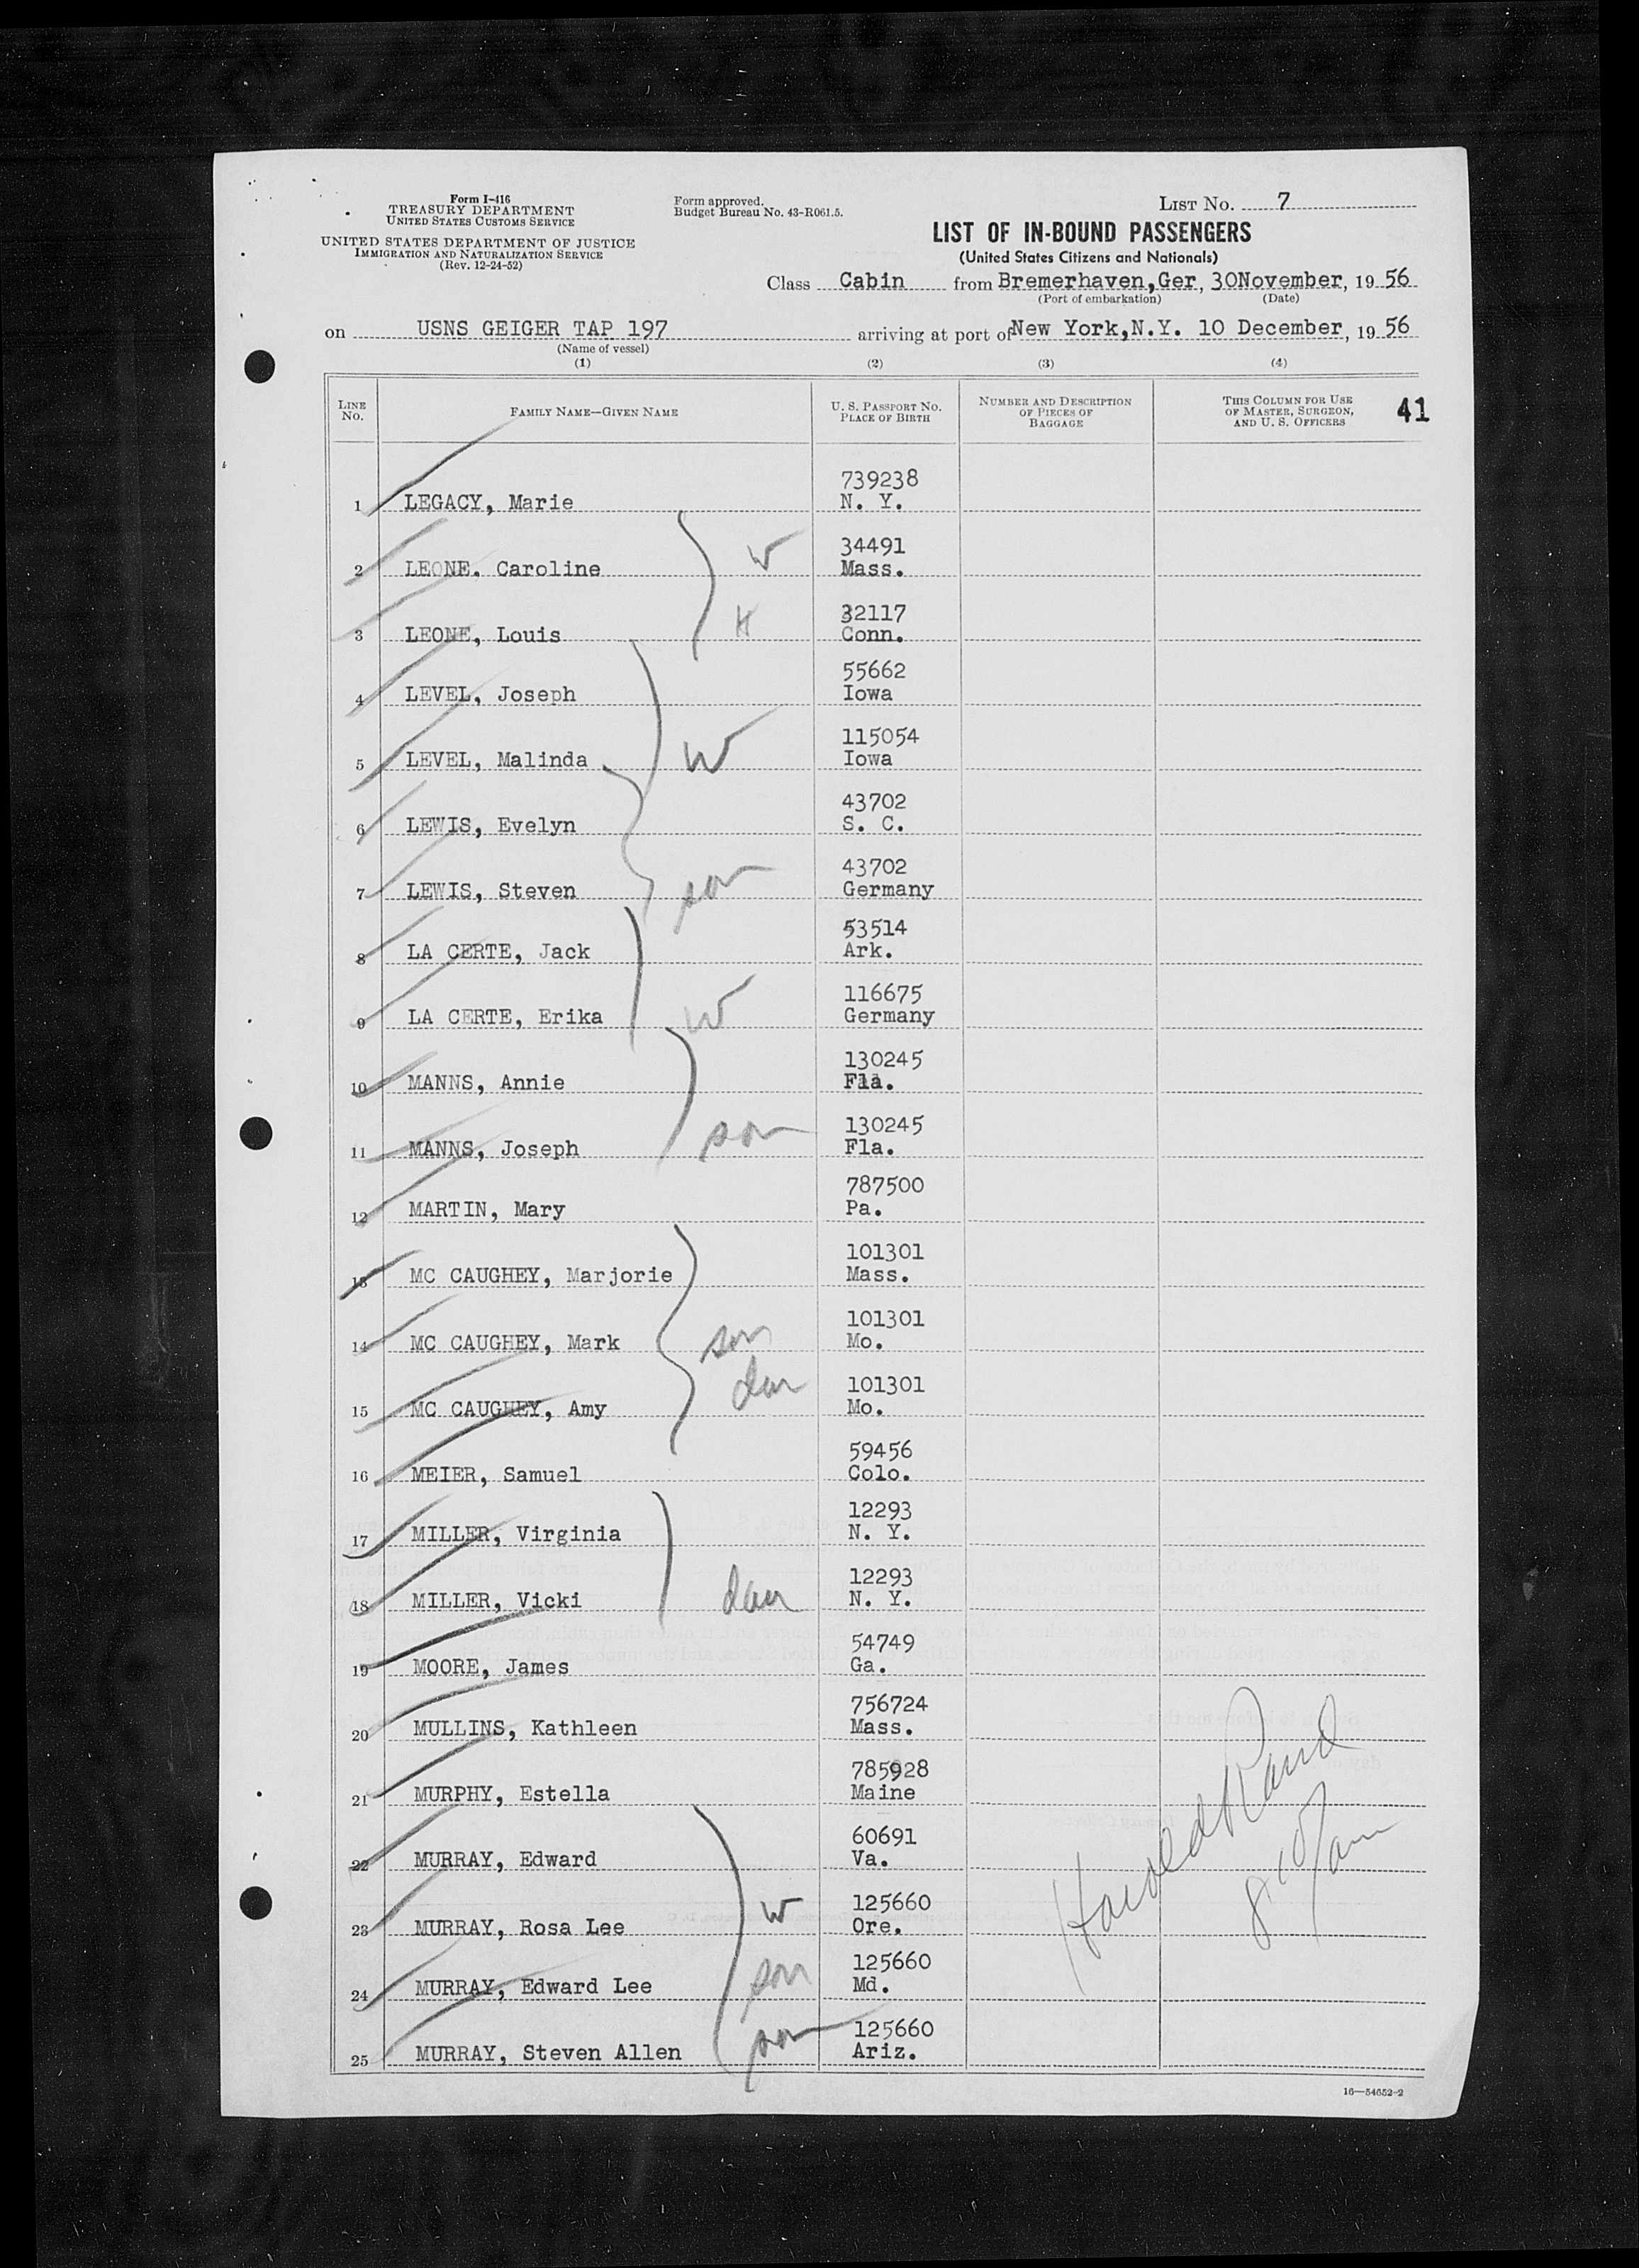 Form I-416
TREASURY DEPARTMENT
UNITED STATES CUSTOMS SERVICE
UNITED STATES DEPARTMENT OF JUSTICE
IMMIGRATION AND NATURALIZATION SERVICE
(Rev. 12-24-52)
Form approved.
Budget Bureau No. 43-R061.5.
LIST NO. 7
LIST OF IN-BOUND PASSENGERS
(United States Citizens and Nationals)
Class Cabin from Bremerhaven,Ger, 30November, 19 56
(Port of embarkation) (Date)
on USNS GEIGER TAP 197 arriving at port of New York,N.Y. 10 December, 19 56
(Name of vessel)
(1) (2) (3) (4)
LINE NO. FAMILY NAME—GIVEN NAME U. S. PASSPORT NO. PLACE OF BIRTH NUMBER AND DESCRIPTION OF PIECES OF BAGGAGE THIS COLUMN FOR USE OF MASTER, SURGEON, AND U. S. OFFICERS 41
739238
1 LEGACY, Marie N. Y.
34491
2 LEONE. Caroline W Mass.
32117
3 LEONE, Louis H Conn.
55662
4 LEVEL, Joseph Iowa
115054
5 LEVEL, Malinda W Iowa
43702
6 LEWIS, Evelyn S. C.
43702
7 LEWIS, Steven son Germany
53514
8 LA CERTE, Jack Ark.
116675
9 LA CERTE, Erika W Germany
130245
10 MANNS, Annie Fla.
130245
11 MANNS, Joseph son Fla.
787500
12 MARTIN, Mary Pa.
101301
13 MC CAUGHEY, Marjorie Mass.
101301
14 MC CAUGHEY, Mark son Mo.
101301
15 MC CAUGHEY, Amy dau Mo.
59456
16 MEIER, Samuel Colo.
12293
17 MILLER, Virginia N. Y.
12293
18 MILLER, Vicki dau N. Y.
54749
19 MOORE, James Ga.
756724
20 MULLINS, Kathleen Mass.
785928
21 MURPHY, Estella Maine
60691
22 MURRAY, Edward Va.
125660
23 MURRAY, Rosa Lee W Ore.
125660
24 MURRAY, Edward Lee son Md.
125660
25 MURRAY, Steven Allen son Ariz.
Harold Rand
8:10/am
16—54652-2